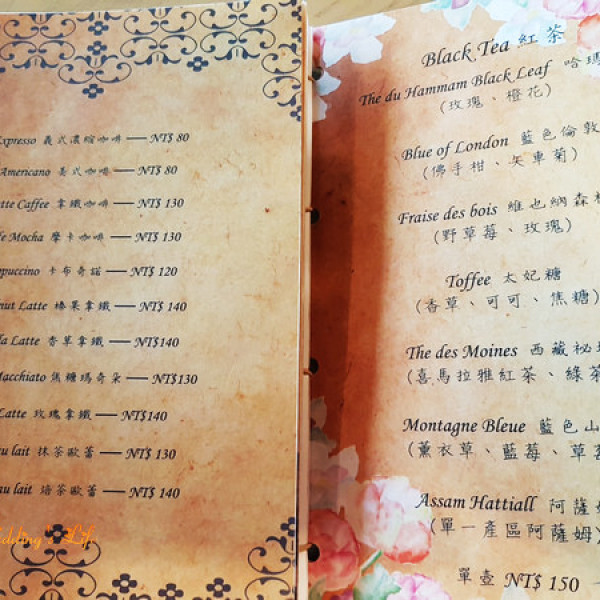 Espresso 義式濃縮咖啡 — NT$ 80
Americano 美式咖啡 — NT$ 80
tte Caffee 拿鐵咖啡 — NT$ 130
fe Mocha 摩卡咖啡 — NT$ 130
ppuccino 卡布奇諾 — NT$ 120
nut Latte 榛果拿鐵 — NT$ 140
la Latte 香草拿鐵 — NT$140
Macchiato 焦糖瑪奇朵 — NT$130
Latte 玫瑰拿鐵 — NT$140
au lait 抹茶歐蕾 — NT$ 130
au lait 焙茶歐蕾 — NT$ 140
edding's Life
Black Tea 紅茶
The du Hammam Black Leaf 哈瑪
(玫瑰、橙花)
Blue of London 藍色倫敦
(佛手柑、矢車菊)
Fraise des bois 維也納森林
(野草莓、玫瑰)
Toffee 太妃糖
(香草、可可、焦糖)
The des Moines 西藏祕
(喜馬拉雅紅茶、綠茶
Montagne Bleue 藍色山
(薰衣草、藍莓、草莓
Assam Hattiall 阿薩姆
(單一產區阿薩姆)
單壺 NT$ 150